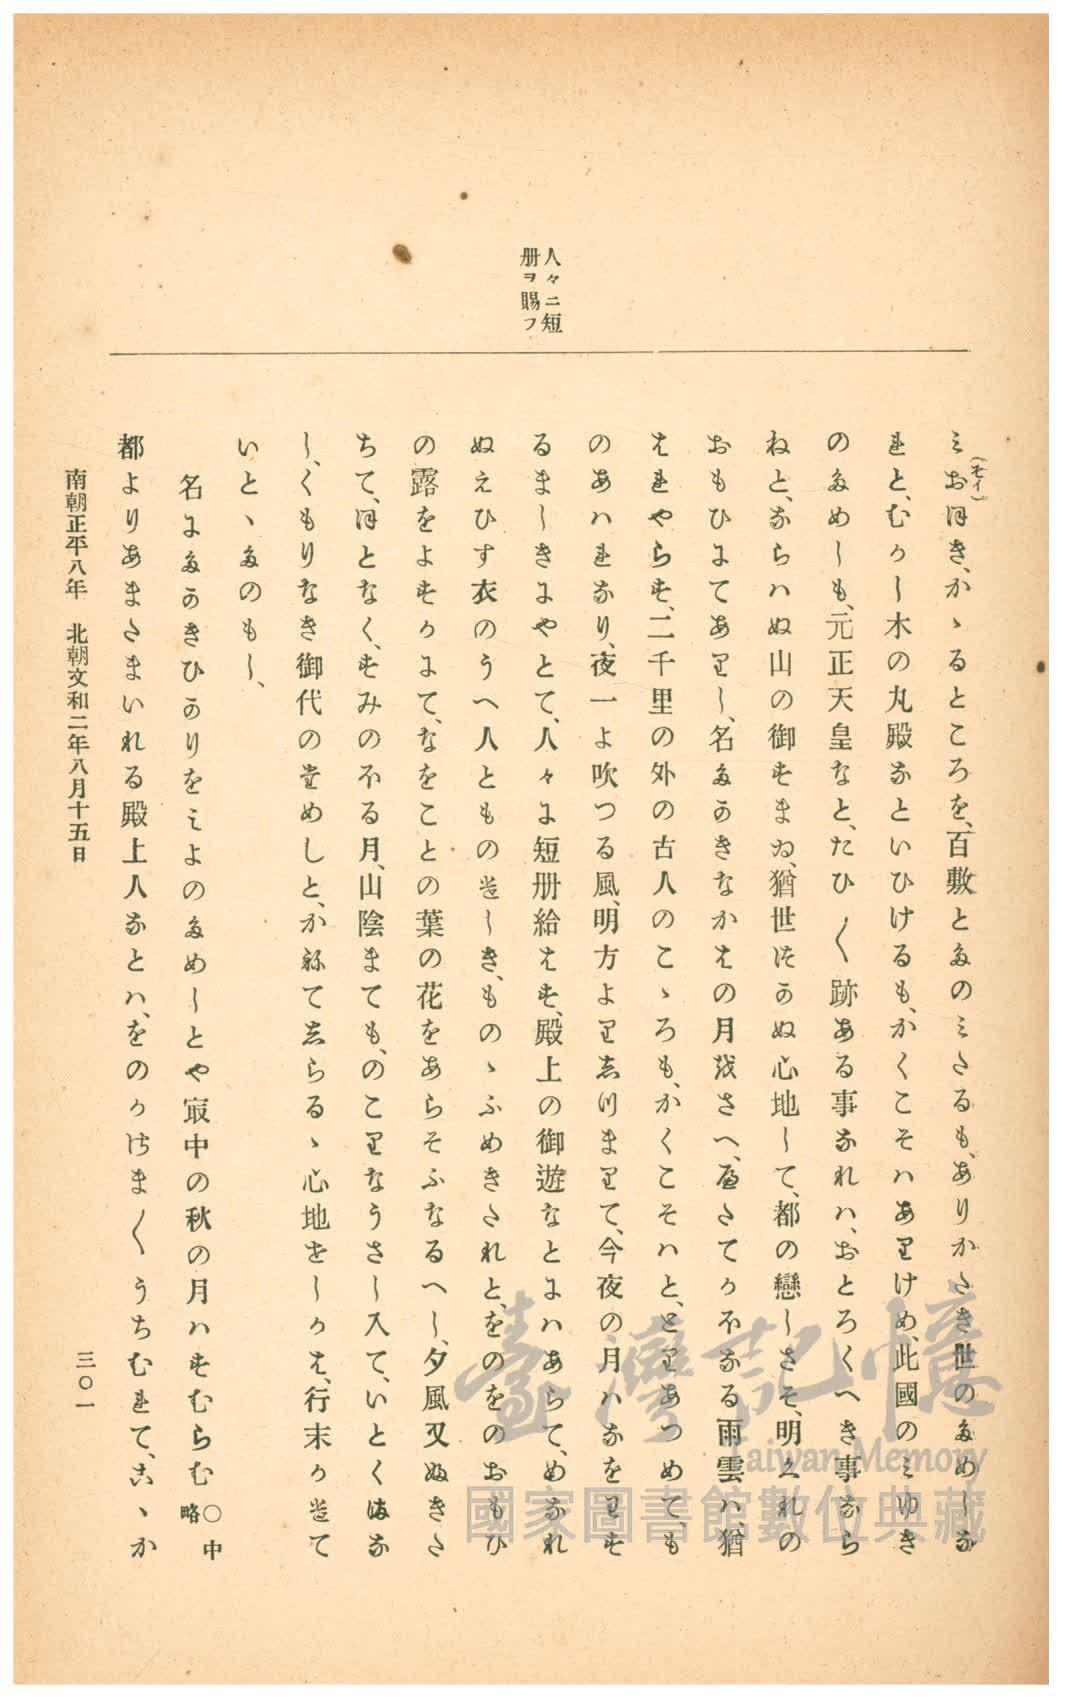 人々ニ短
册ヲ賜フ
(そイ)
みおほき、かゝるところを、百敷とたのみたるも、ありかたき世のためしな
れと、むかし木の丸殿なといひけるも、かくこそハありけめ、此國のみゆき
のためしも、元正天皇なと、たひ〱跡ある事なれハ、おとろくへき事なら
ねと、ならハぬ山の御すまゐ、猶世にかのぬ心地して、都の戀しさそ、明くれの
おもひにてありし、名たかきなかはの月越さへ、へたてかほなる雨雲ハ、猶
はれやらす、二千里の外の古人のこゝろも、かくこそハと、とりあつめて、も
のあハれなり、夜一よ吹つる風、明方よりしつまりて、今夜の月ハなをりす
るましきにやとて、人々に短册給はす、殿上の御遊なとにハあらて、めなれ
ぬえひす衣のうへ人とものさしき、ものゝふめきたれと、をのをのおもひ
の露をよすかにて、なをことの葉の花をあらそふなるへし、夕風又ぬきた
ちて、ほとなく、すみのほる月、山陰まても、のこりなうさし入て、いとくまな
し、くもりなき御代のためしと、かねてしらるゝ心地をしかは、行末かさて
いとゝたのもし、
名にたかきひかりをみよのためしとや冣中の秋の月ハすむらむ〇中略
都よりあまたまいれる殿上人なとハ、をのかさま〱うちむれて、こゝか
南朝正平八年　北朝文和二年八月十五日
三〇一
臺灣記憶
Taiwan Memory
國家圖書館數位典藏